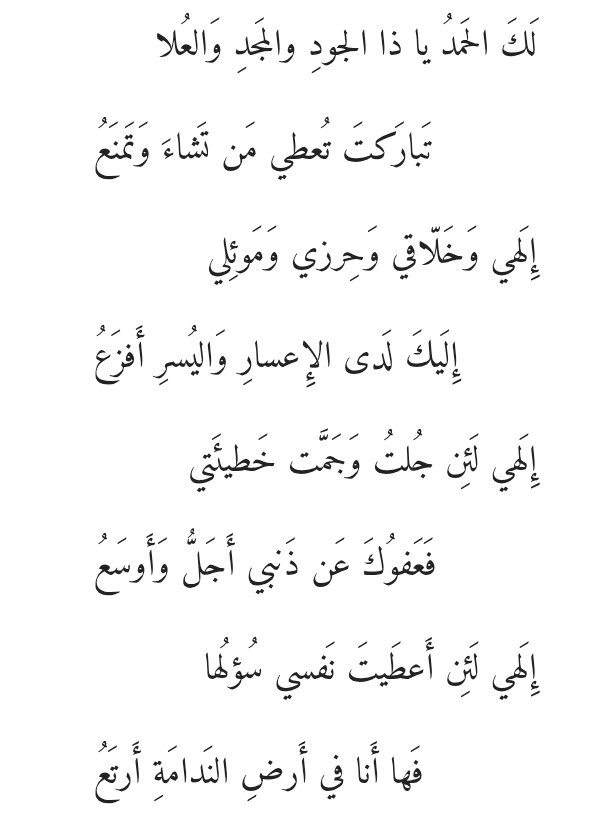 لَكَ الحَمدُ يا ذا الجودِ والمَجدِ وَالعُلا
تَبارَكتَ تُعطي مَن تَشاءَ وَتَمنَعُ
إِلَهي وَخَلّاقي وَحِرزي وَمَوئِلي
إِلَيكَ لَدى الإِعسارِ وَاليُسرِ أَفزَعُ
إِلَهي لَئِن جُلتُ وَجَمَّت خَطيئَتي
فَعَفوُكَ عَن ذَنبي أَجَلُّ وَأَوسَعُ
إِلَهي لَئِن أَعطَيتَ نَفسي سُؤلُها
فَها أَنا في أَرضِ النَدامَةِ أَرتَعُ